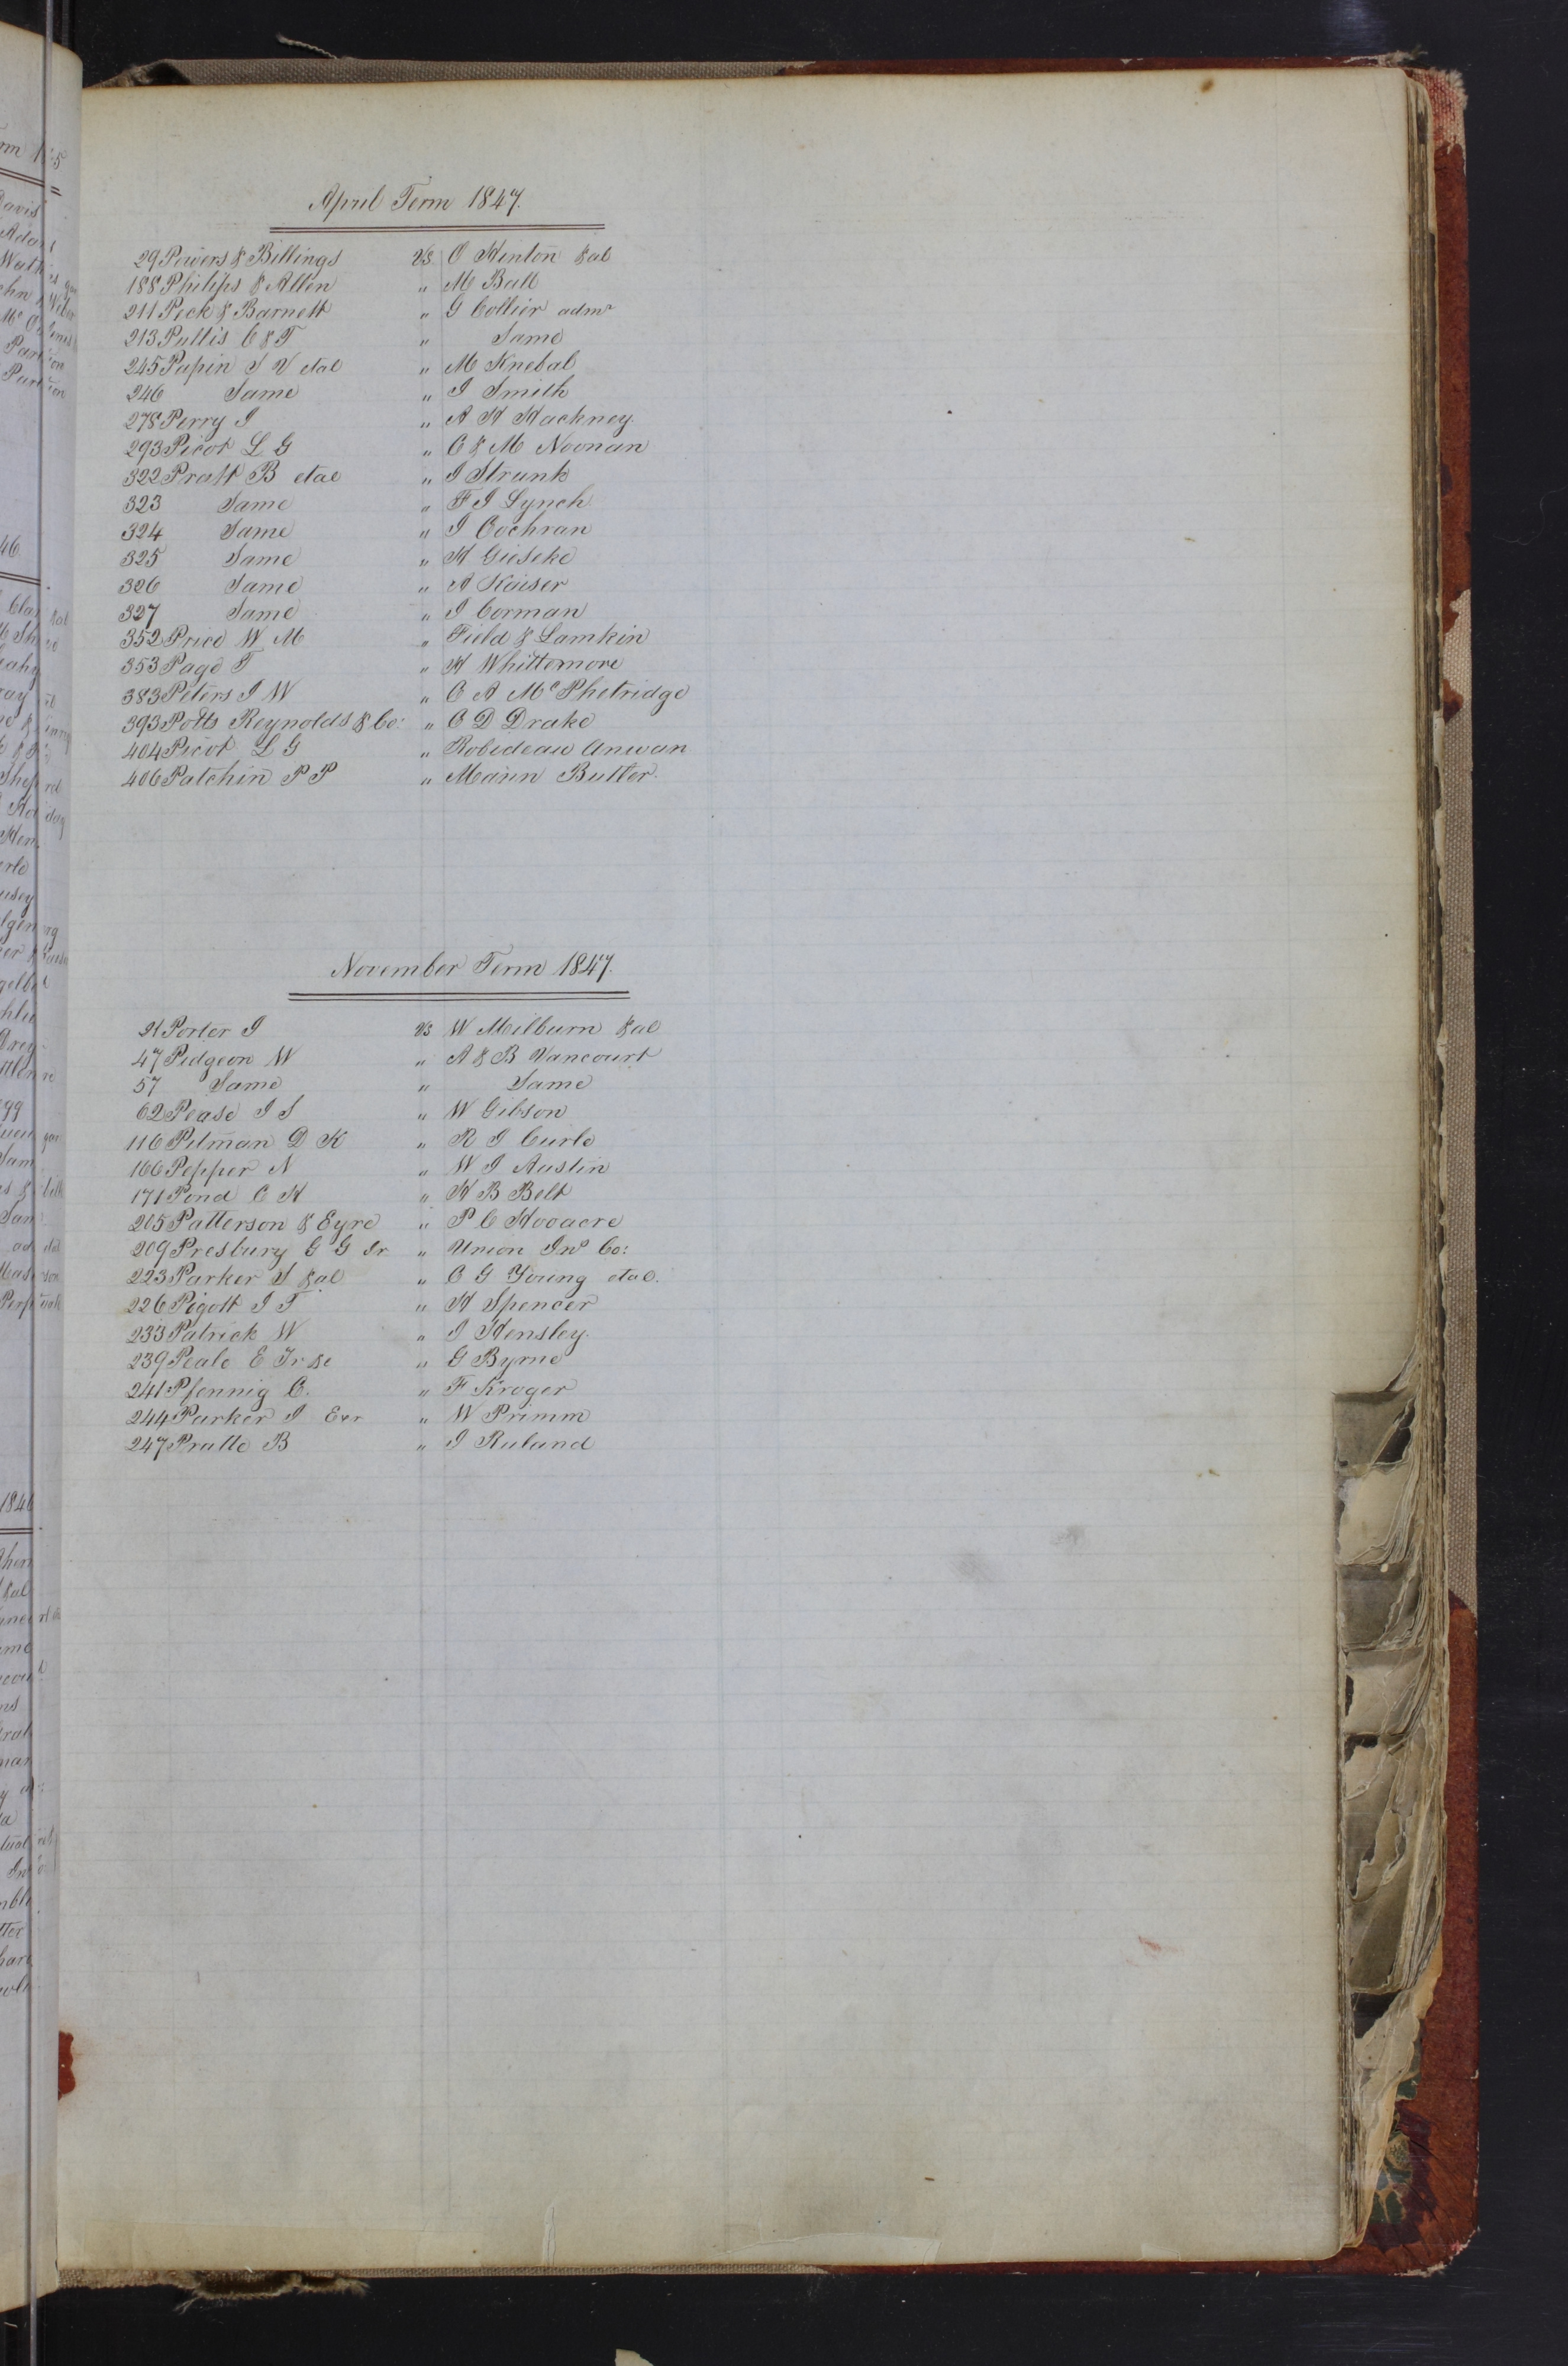 April Term 1847.
29 Powers & Billings vs O Hinton &al
188 Philips & Allen " M Ball
211 Peck & Barnett " G Collier admr
213 Pultis C & T " Same
245 Papin S V etal " M Knebal
246 Same " I Smith
278 Perry I " A H Hackney.
293 Picot L G " C & M Noonan
322 Pratt B etal " I Strunk
323 Same " F I Lynch
324 Same " I Cochran
325 Same " H Gieseke
326 Same " A Kaiser
327 Same " I Corman
352 Price W M " Field & Lamkin
353 Page T " H Whittemore
383 Peters I W " C A McPhetridge
393 Potts Reynolds & Co: " C D Drake
404 Picot L G " Robideau
406 Patchin P P " Butler.
November Term 1847.
21 Porter I vs W Milburn &al
47 Pidgeon W " A & B Vancourt
57 Same " Same
62 Pease I S " W Gibson
116 Pitman D K " R I Curle
166 Pepper N " W I Austin
171 Pond C H " H B Belt
205 Patterson & Eyre " P C
209 Presbury G G Jr " Union Ins Co:
223 Parker S &al " C G Young etal.
226 Pigott I T " H Spencer
233 Patrick W " I Hensley.
239 Peale E " G Byrne
241 Pfennig C. " F Kroger
244 Parker I Exr " W Primm
247 Pratte B " I Ruland